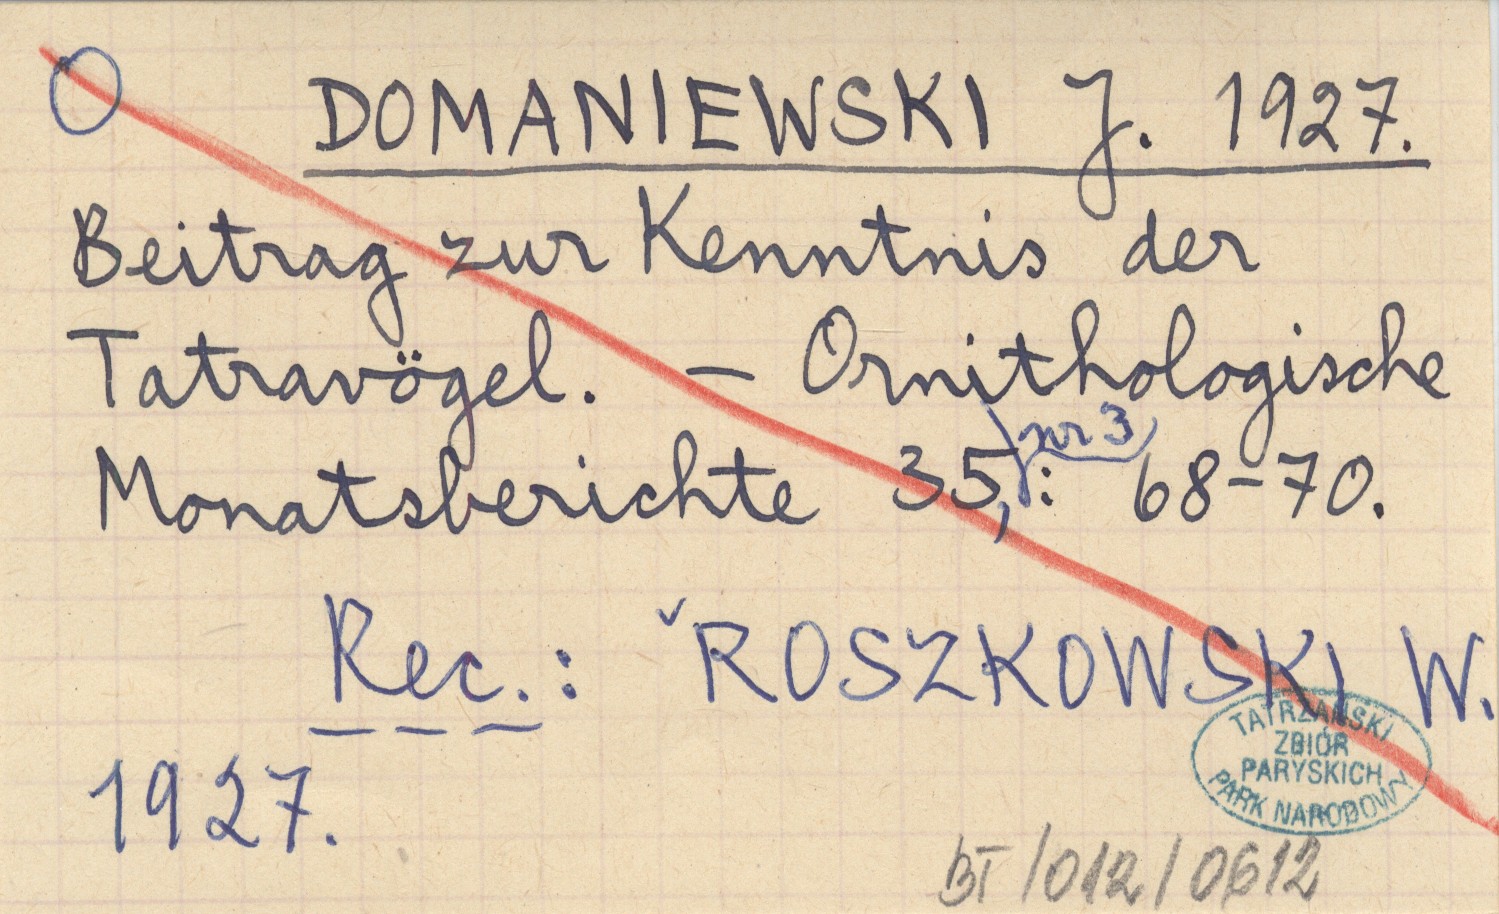 DOMANIEWSKI J. 1927.
Beitrag zur Kenntnis der
Tatravögel. – Ornithologische
nr 3
Monatsberichte 35, : 68–70.
Rec.: ˇROSZKOWSKI W.
1927.
TATRZAŃSKI
ZBIÓR
PARYSKICH
PARK NARODOWY
BT/012/0612